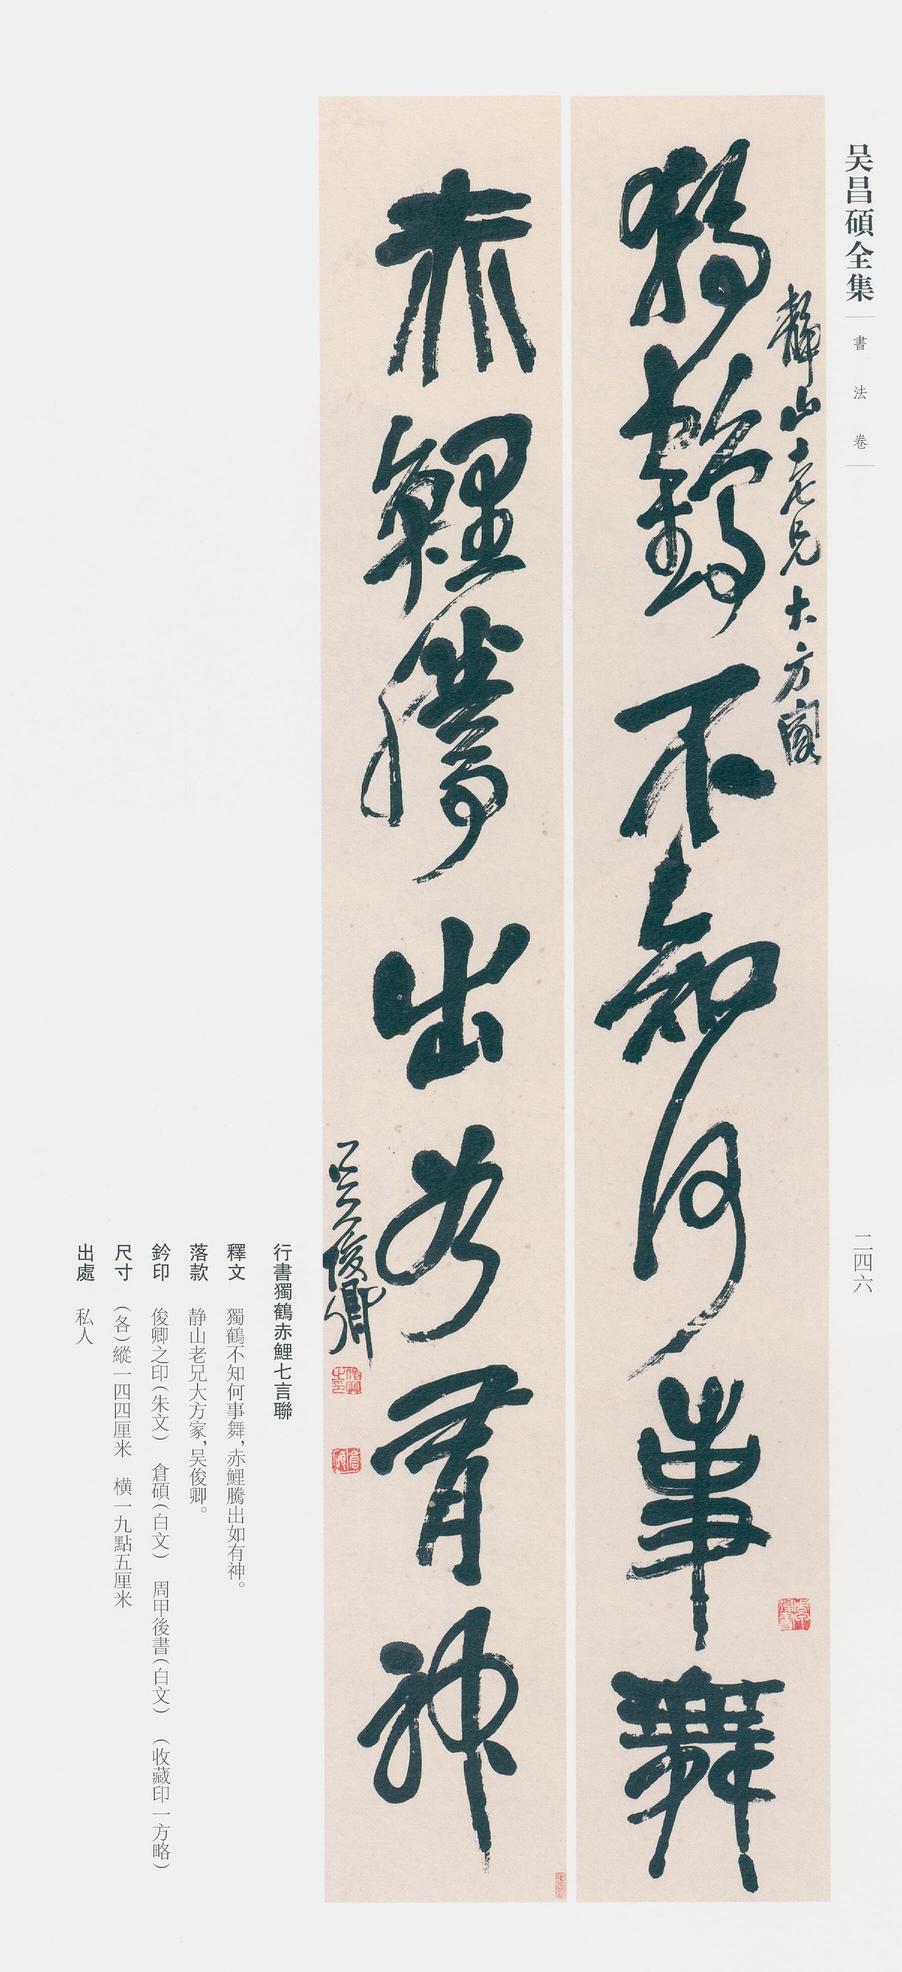 吴昌碩全集
書法卷
二四六
靜山老兄大方家
獨鶴不知何事舞
赤鯉騰出如有神
吴俊卿
行書獨鶴赤鯉七言聯
釋文　獨鶴不知何事舞，赤鯉騰出如有神。
落款　静山老兄大方家，吴俊卿。
鈐印　俊卿之印（朱文）　倉碩（白文）　周甲後書（白文）　（收藏印一方略）
尺寸　（各）縱一四四厘米　橫一九點五厘米
出處　私人